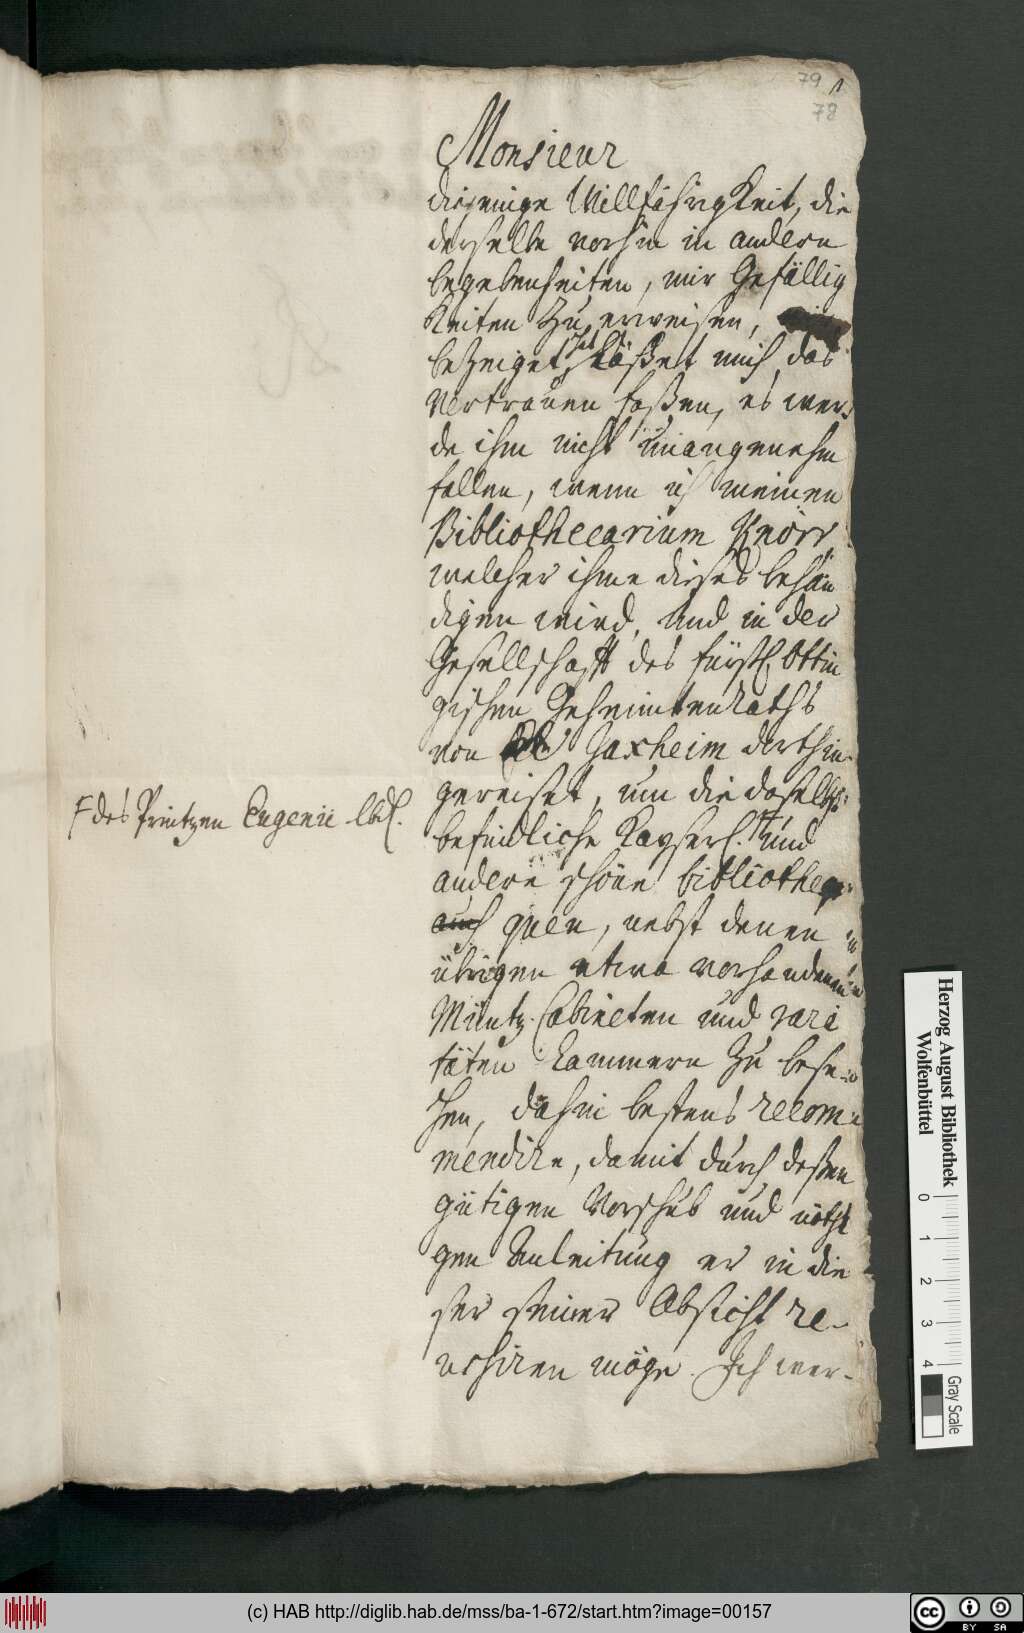 79
78
Monsieur
diejenige Willfährigkeit, die
derselbe vorhin in andern
begebenheiten, mir Gefällig
Keiten zu erweisen,
bezeiget, hat
läßet mich das
Vertrauen faßen, es wer-
de ihm nicht unangenehm
fallen, wenn ich meinen
Bibliothecarium Knorr
welcher ihme dieses behän
digen wird, und in der
Gesellschafft des fürstl. Öttin
gischen Geheimtenraths
von Jaxheim dorthin
gereiset, um die daselbst
befindliche Kayserl. F und
F des Printzen Eugenii
andere schöne bibliothe
auch quen, nebst denen
übrigen etwa vorhandenen
Müntz-Cabineten und rari
täten Kammern zu bese-
hen, dahin bestens recom-
mendire, damit durch deßen
gütigen Vorschub und nöthi
gen Anleitung er in die
ser seiner Absicht re-
ussiren möge. Ich wer-
Herzog August Bibliothek
Wolfenbüttel
0 1 2 3 4
Gray Scale
(c) HAB http://diglib.hab.de/mss/ba-1-672/start.htm?image=00157
cc BY SA